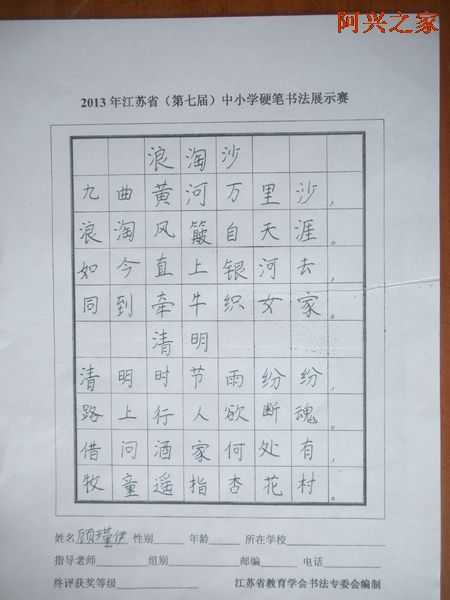 阿兴之家
2013年江苏省（第七届）中小学硬笔书法展示赛
浪淘沙
九曲黄河万里沙，
浪淘风簸自天涯。
如今直上银河去，
同到牵牛织女家。
清明
清明时节雨纷纷，
路上行人欲断魂。
借问酒家何处有，
牧童遥指杏花村。
姓名顾瑾伊 性别____ 年龄____ 所在学校____
指导老师____ 组别____ 邮编____ 电话____
终评获奖等级____ 江苏省教育学会书法专委会编制